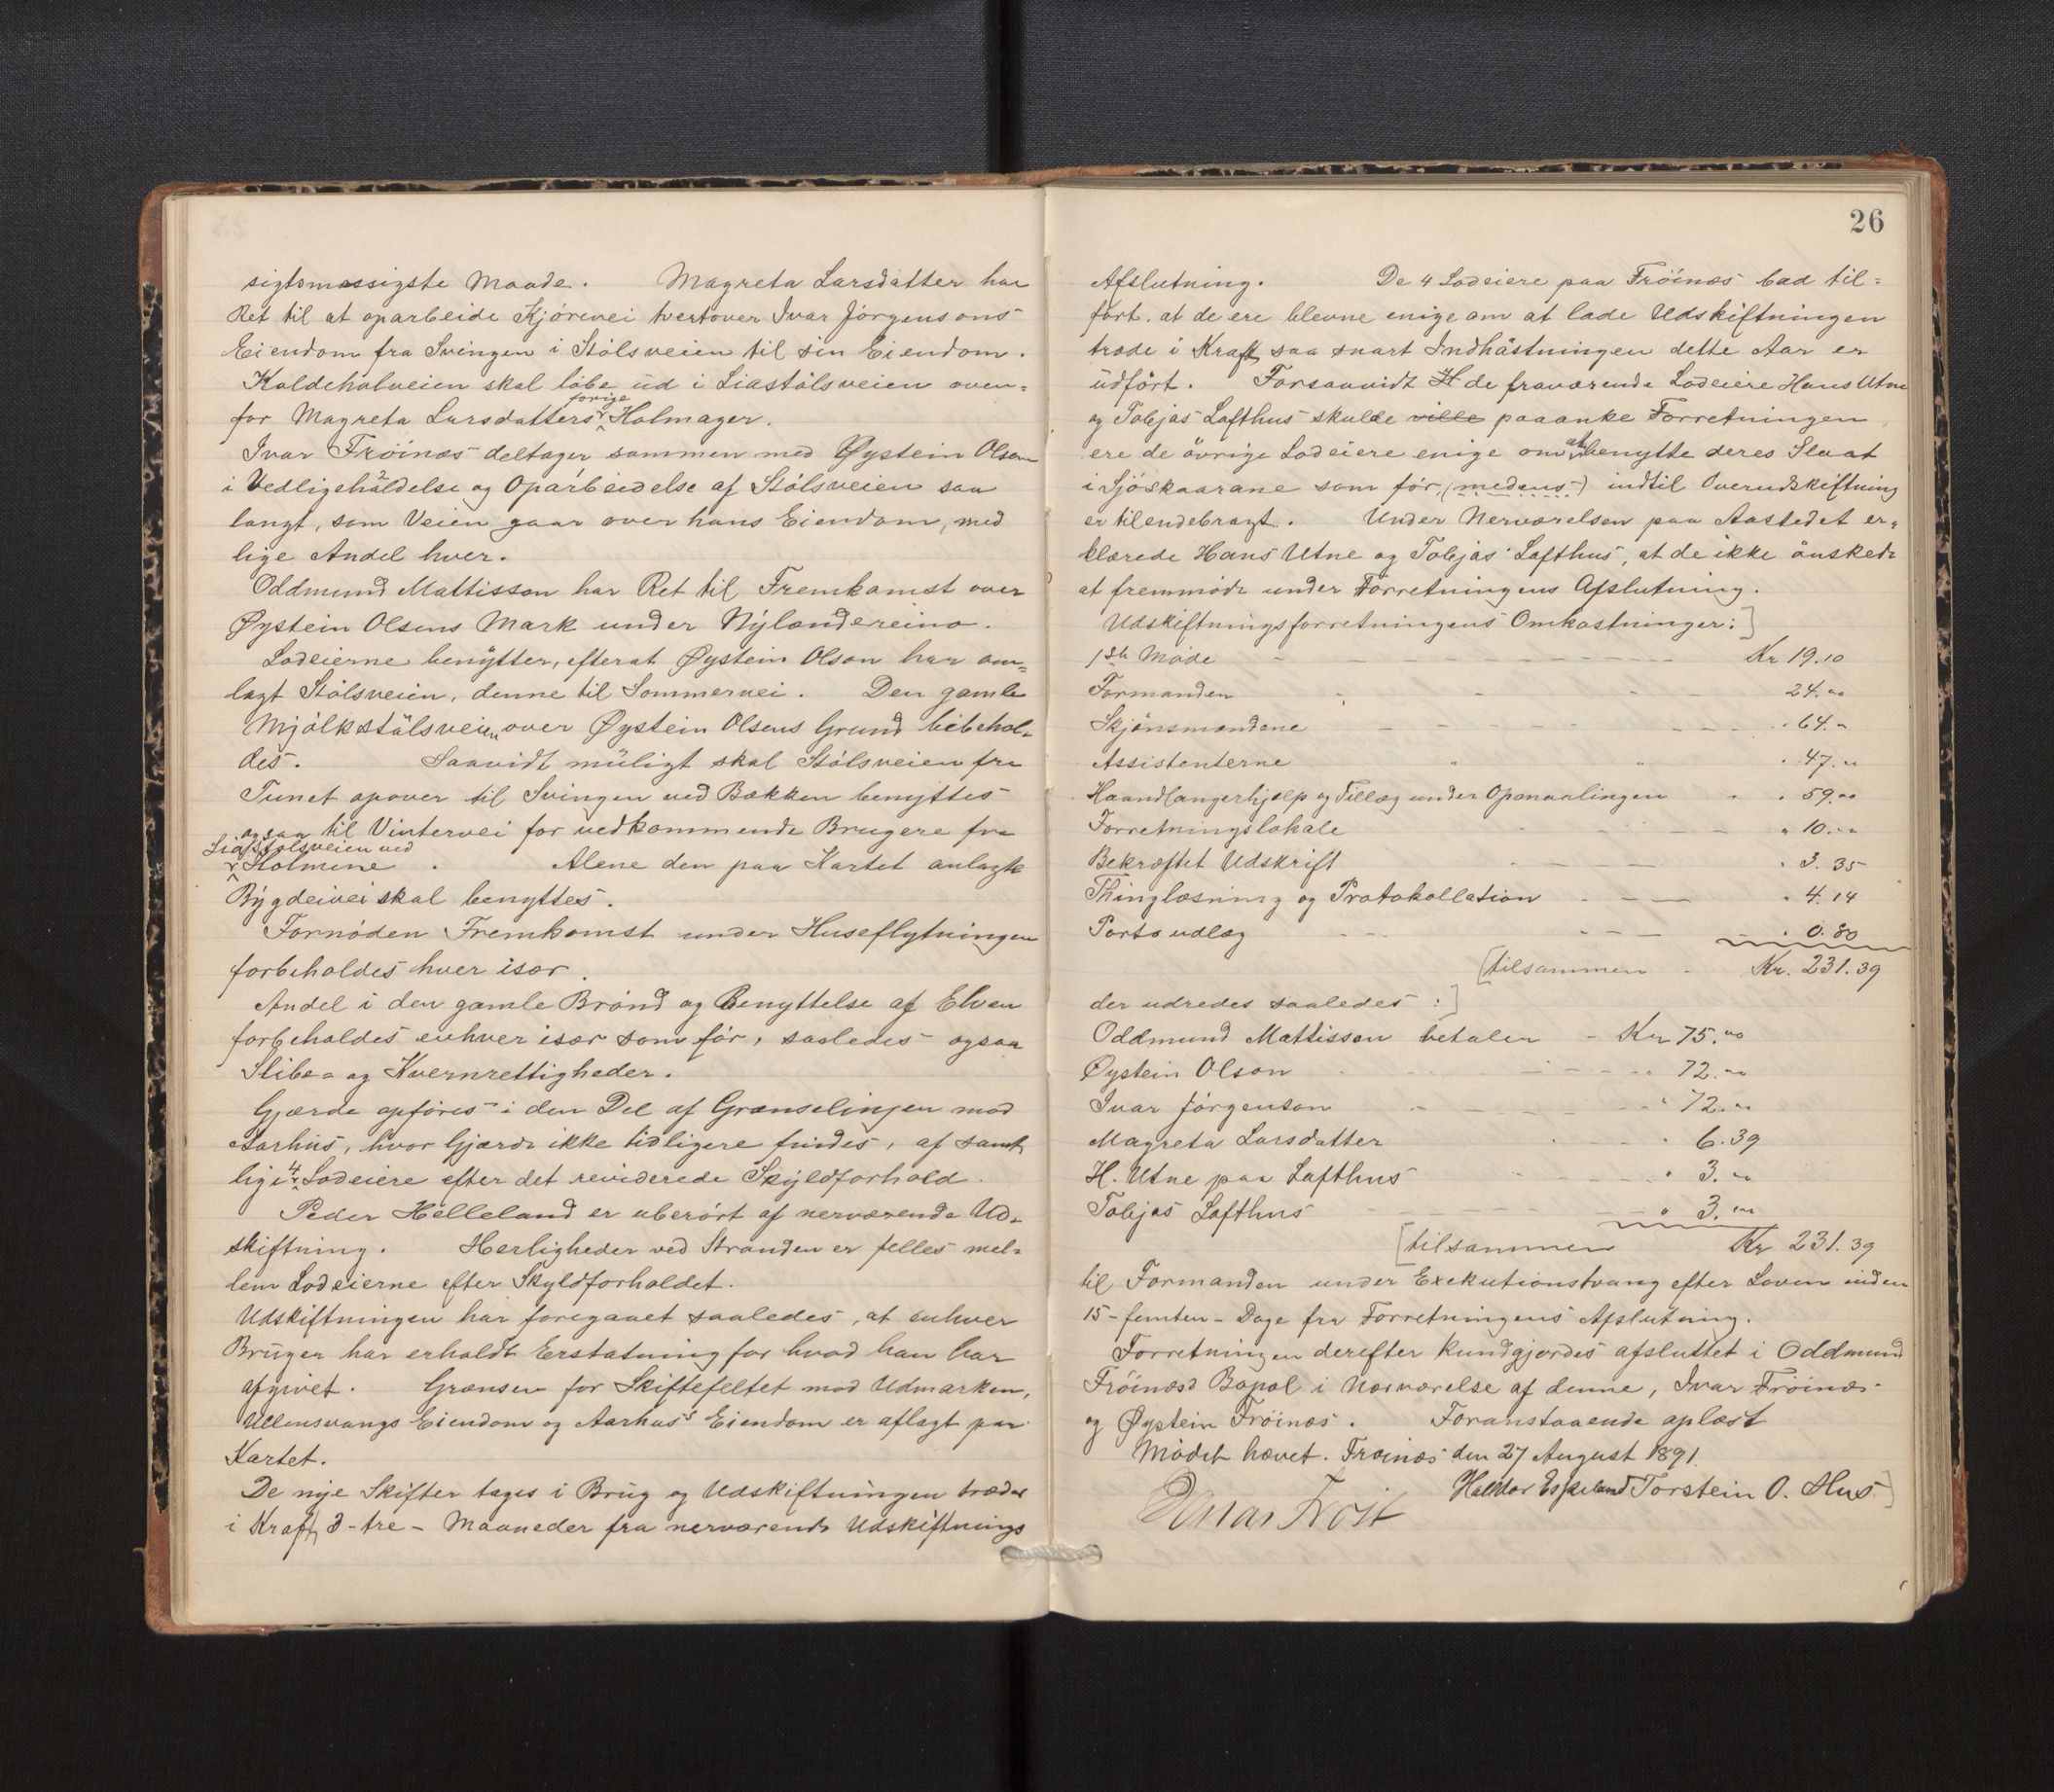 sigtsmæssigste Maade. Magreta Larsdatter har
Ret til at oparbeide Kjörevei tvertover Ivar Jörgensons
Eiendom fra Svingen i Stölsveien til sin Eiendom.
Koldeholveien skal löbe ud i Liastölsveien oven-
for Magreta Larsdatters forige Holmager.
Ivar Fröinæs deltager sammen med Øystein Olson
i Vedligeholdelse og Oparbeidelse af Stölsveien saa
langt, som Veien gaar over hans Eiendom, med
lige Andel hver.
Oddmund Mattisson har Ret til Fremkomst over
Øystein Olsens Mark under Nylændereina.
Lodeierne benytter, efterat Øystein Olson har om-
lagt Stölsveien, denne til Sommervei. Den gamle
Mjölkstölsveien over Øystein Olsens Grund beibehol-
des. Saavidt muligt skal Stölsveien fra
Tunet opover til Svingen ved Bækken benyttes
ogsaa til Vintervei for vedkommende Brugere fra
Liastölsveien ved
Holmene. Alene den paa Kartet anlagte
Bygdeivei skal benyttes.
Fornöden Fremkomst under Huseflytningen
forbeholdes hver især.
Andel i den gamle Brönd og Benyttelse af Elven
forbeholdes enhver især som för, saaledes ogsaa
Slibe- og Kvernrettigheder.
Gjærde opföres i den Del af Grænselinjen mod
Aarhus, hvor Gjærde ikke tidligere findes, af samt-
lige 4 Lodeiere efter det reviderede Skyldforhold.
Peder Helleland er uberört af nerværende Ud-
skiftning. Herligheder ved Stranden er felles mel-
lem Lodeierne efter Skyldforholdet.
Udskiftningen har foregaaet saaledes, at enhver
Bruger har erholdt Erstatning for hvad han har
afgivet. Grænsen for Skiftefeltet mod Udmarken,
Ullensvangs Eiendom og Aarhus's Eiendom er aflagt paa
Kartet.
De nye Skifter tages i Brug og Udskiftningen træder
i Kraft 3-tre- Maaneder fra nerværende Udskiftnings
26
Afslutning. De 4 Lodeiere paa Fröinæs bad til-
fört. at de ere blevne enige om at lade Udskiftningen
træde i Kraft saa snart Indhöstningen dette Aar er
udfört. Forsaavidt H de fraværende Lodeiere Hans Utne
og Tobjas Lofthus skulde ville paaanke Forretningen
ere de övrige Lodeiere enige om at benytte deres Slaat
i Sjöskaarane som för, (medens) indtil Overudskiftning
er tilendebragt. Under Nerværelsen paa Aastedet er-
klærede Hans Utne og Tobjas Lofthus, at de ikke önskede
at fremmöde under Forretningens Afslutning.
Udskiftningsforretningens Omkostninger:]
1ste Möde Kr 19.10
Formanden 24.00
Skjönsmændene " 64."
Assistenterne " 47."
Haandlangerhjælp og Tillæg under Opmaalingen " 59.00
Forretningslokale " 10."
Bekræftet Udskrift " 3.35
Thinglæsning og Protokollation " 4.14
Porto udlæg " 0.80
[tilsammen - Kr. 231.39
der udredes saaledes:]
Oddmund Mattisson betaler - Kr 75.00
Øystein Olson " 72."
Ivar Jörgenson " 72."
Magreta Larsdatter " 6.39
H. Utne paa Lofthus " 3."
Tobjas Lofthus " 3."
[tilsammen Kr 231.39
til Formanden under Exekutionstvang efter Loven inden
15-femten- Dage fra Forretningens Afslutning.
Forretningen derefter kundgjordes afsluttet i Oddmund
Fröinæs's Bopæl i Nærværelse af denne, Ivar Fröinæs
og Øystein Fröinæs. Foranstaaende oplæst
Mödet hævet. Fröinæs den 27 August 1891.
Halldor Espeland Torstein O. Hus]